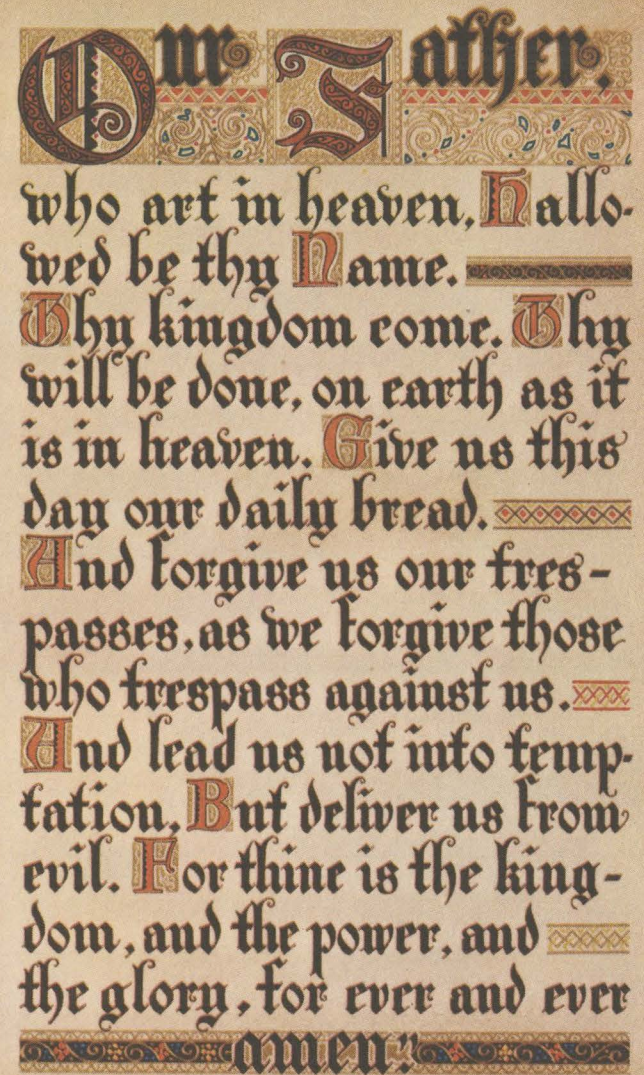 Our Father,
who art in heaven, Hallo-
wed be thy Name.
Thy kingdom come. Thy
will be done, on earth as it
is in heaven. Give us this
day our daily bread.
And forgive us our tres-
passes, as we forgive those
who trespass against us.
And lead us not into temp-
tation, But deliver us from
evil. For thine is the king-
dom, and the power, and
the glory, for ever and ever
amen.